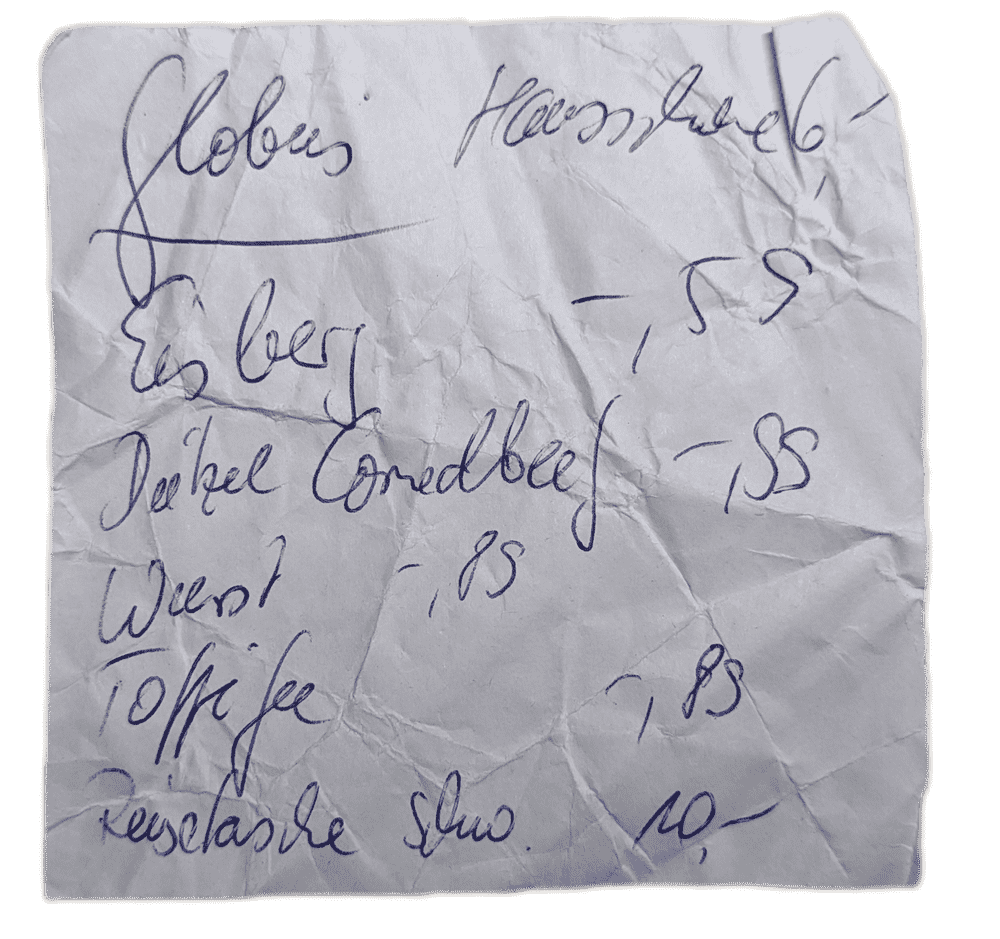 Globus Hausschuhe 6,-
Eisberg -,59
Cornedbeef -,99
Wurst -,89
Toffifee -,89
Reisetasche Schw. 10,-